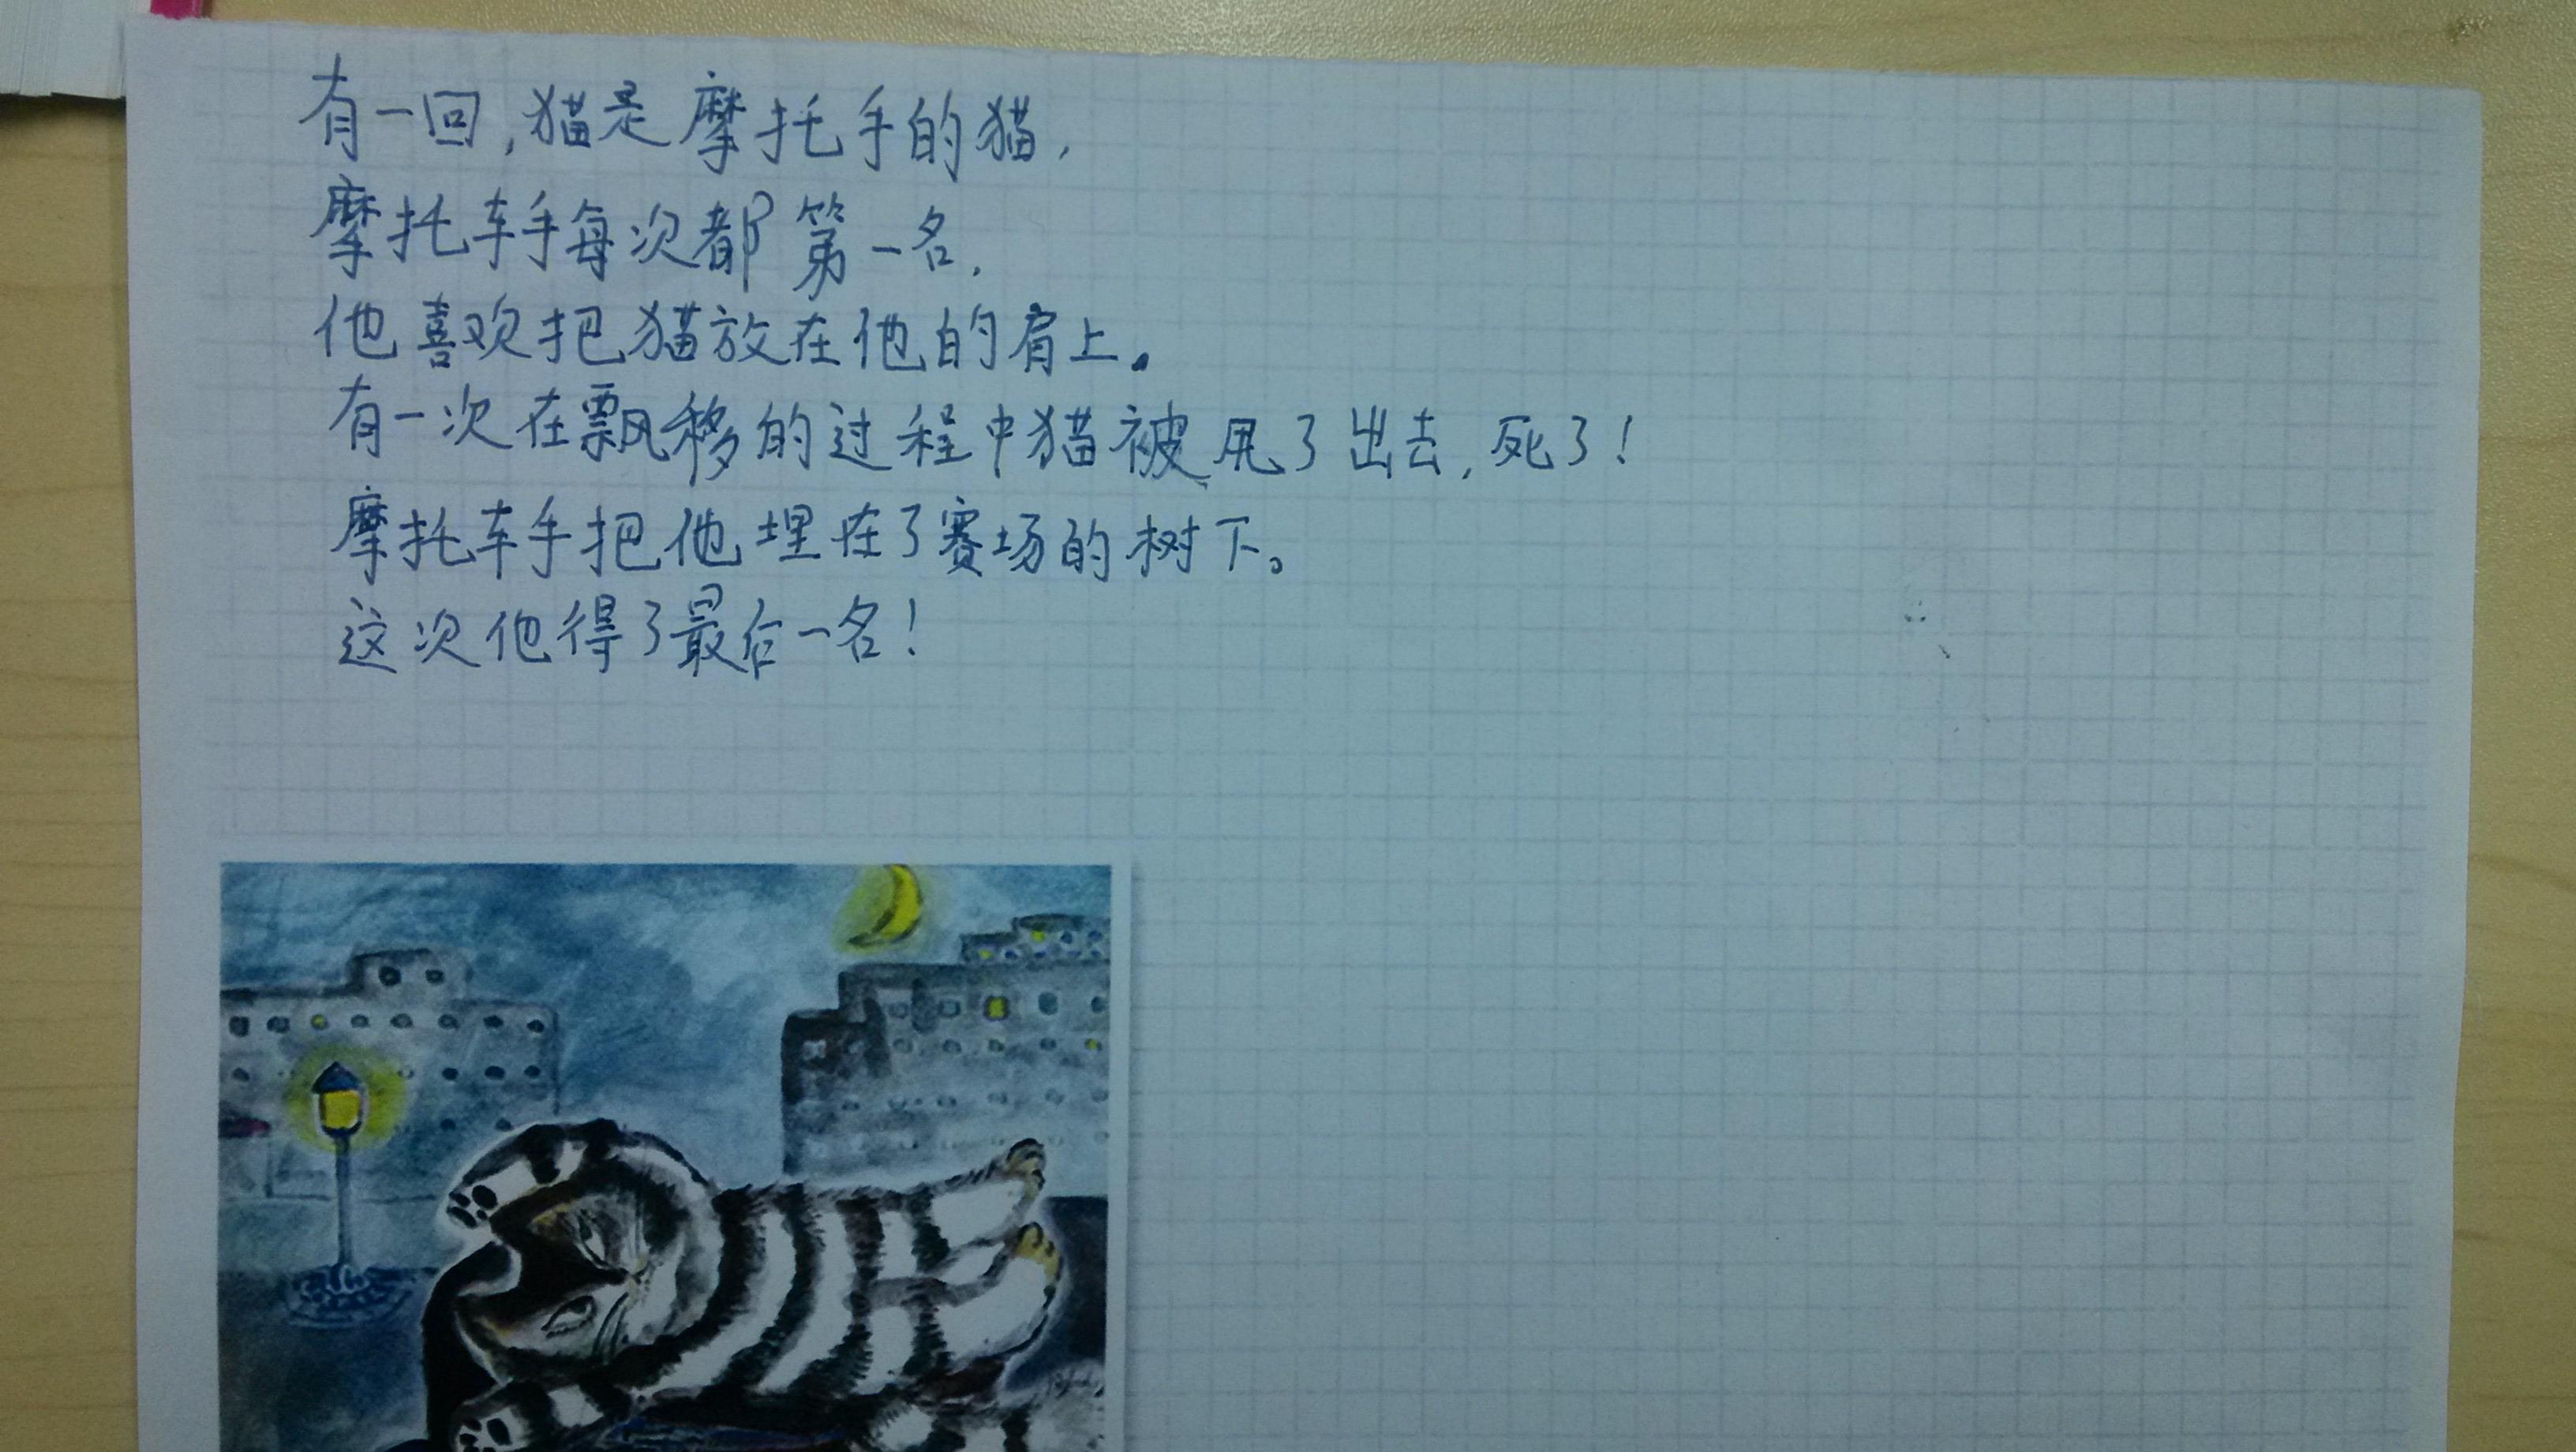 有一回,猫是摩托手的猫,
摩托车手每次都第一名,
他喜欢把猫放在他的肩上。
有一次在飘移的过程中猫被甩了出去,死了!
摩托车手把他埋在了赛场的树下。
这次他得了最后一名!